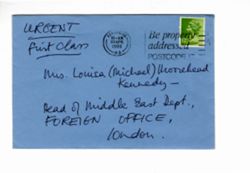 URGENT
First Class
Be properly
addressed
POSTCODE
Mrs. Louisa (Michael) Moorehead
Kennedy —
Head of Middle East Dept.,
FOREIGN OFFICE,
London.